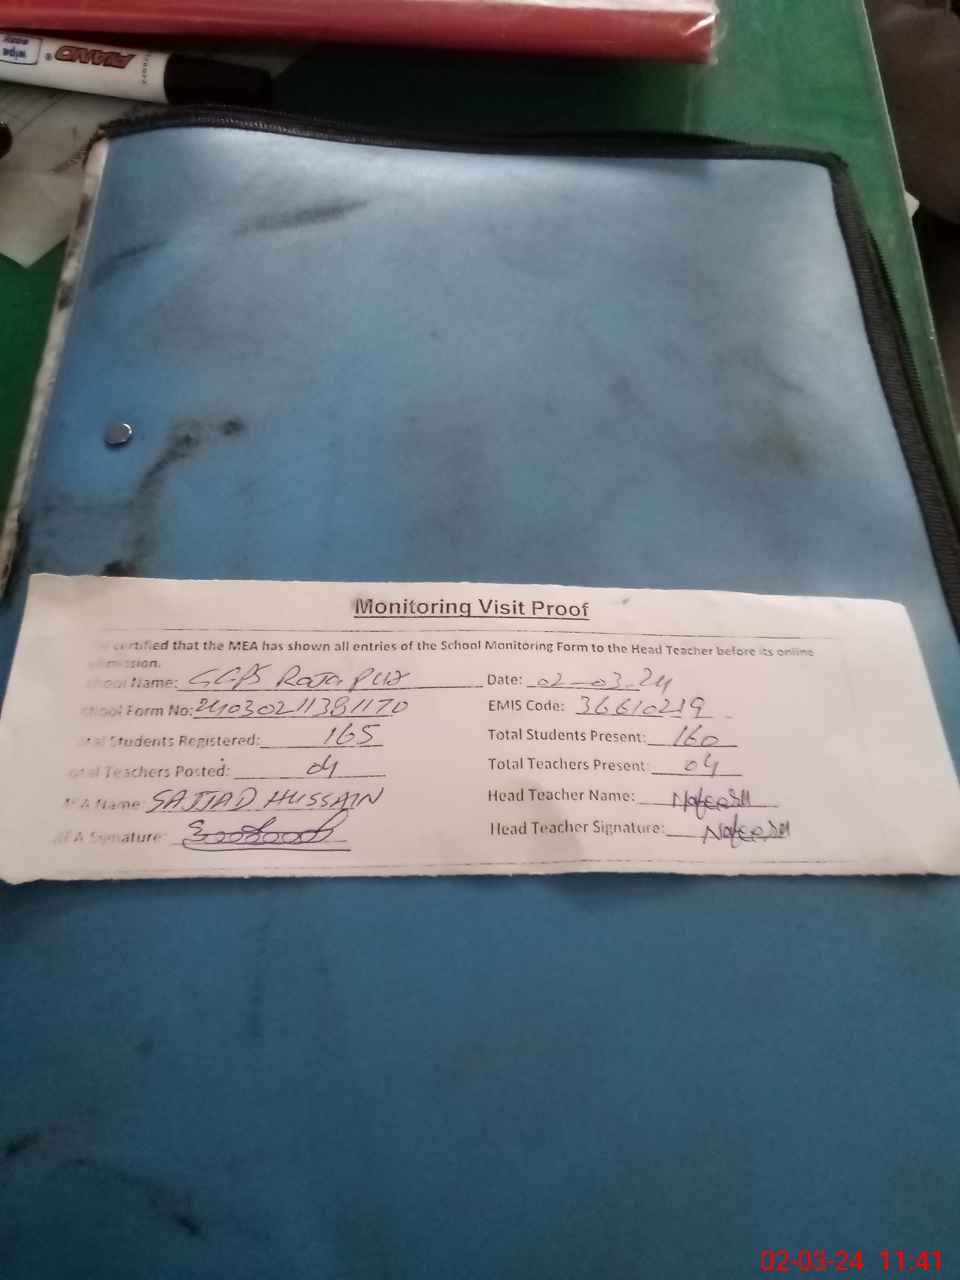 PIANO
wipe
Monitoring Visit Proof
certified that the MEA has shown all entries of the School Monitoring Form to the Head Teacher before its online
School Name: GGPS Raja Pur Date: 02-03-24
School Form No: EMIS Code: 36610219
Total Students Registered: 165 Total Students Present: 160
Total Teachers Posted: 04 Total Teachers Present: 04
MEA Name: SAJJAD HUSSAIN Head Teacher Name:
MEA Signature: Head Teacher Signature:
02-03-24 11:41